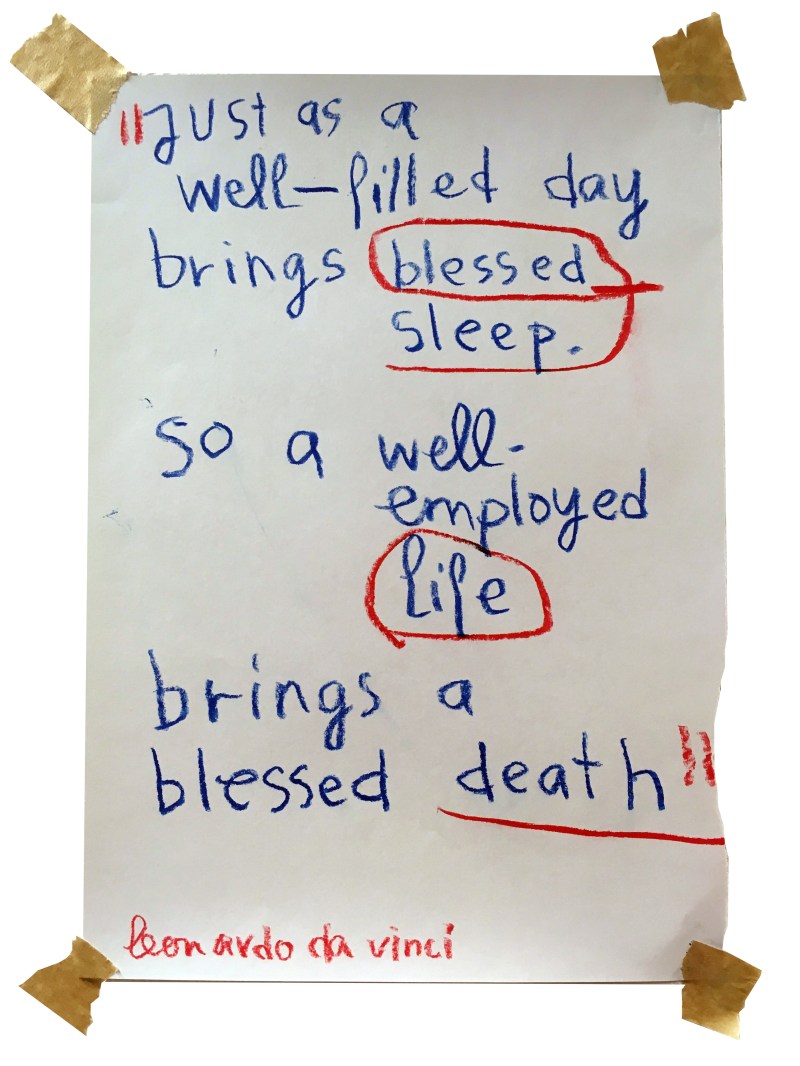 "Just as a
well-filled day
brings blessed
sleep.
so a well-
employed
life
brings a
blessed death"
leonardo da vinci